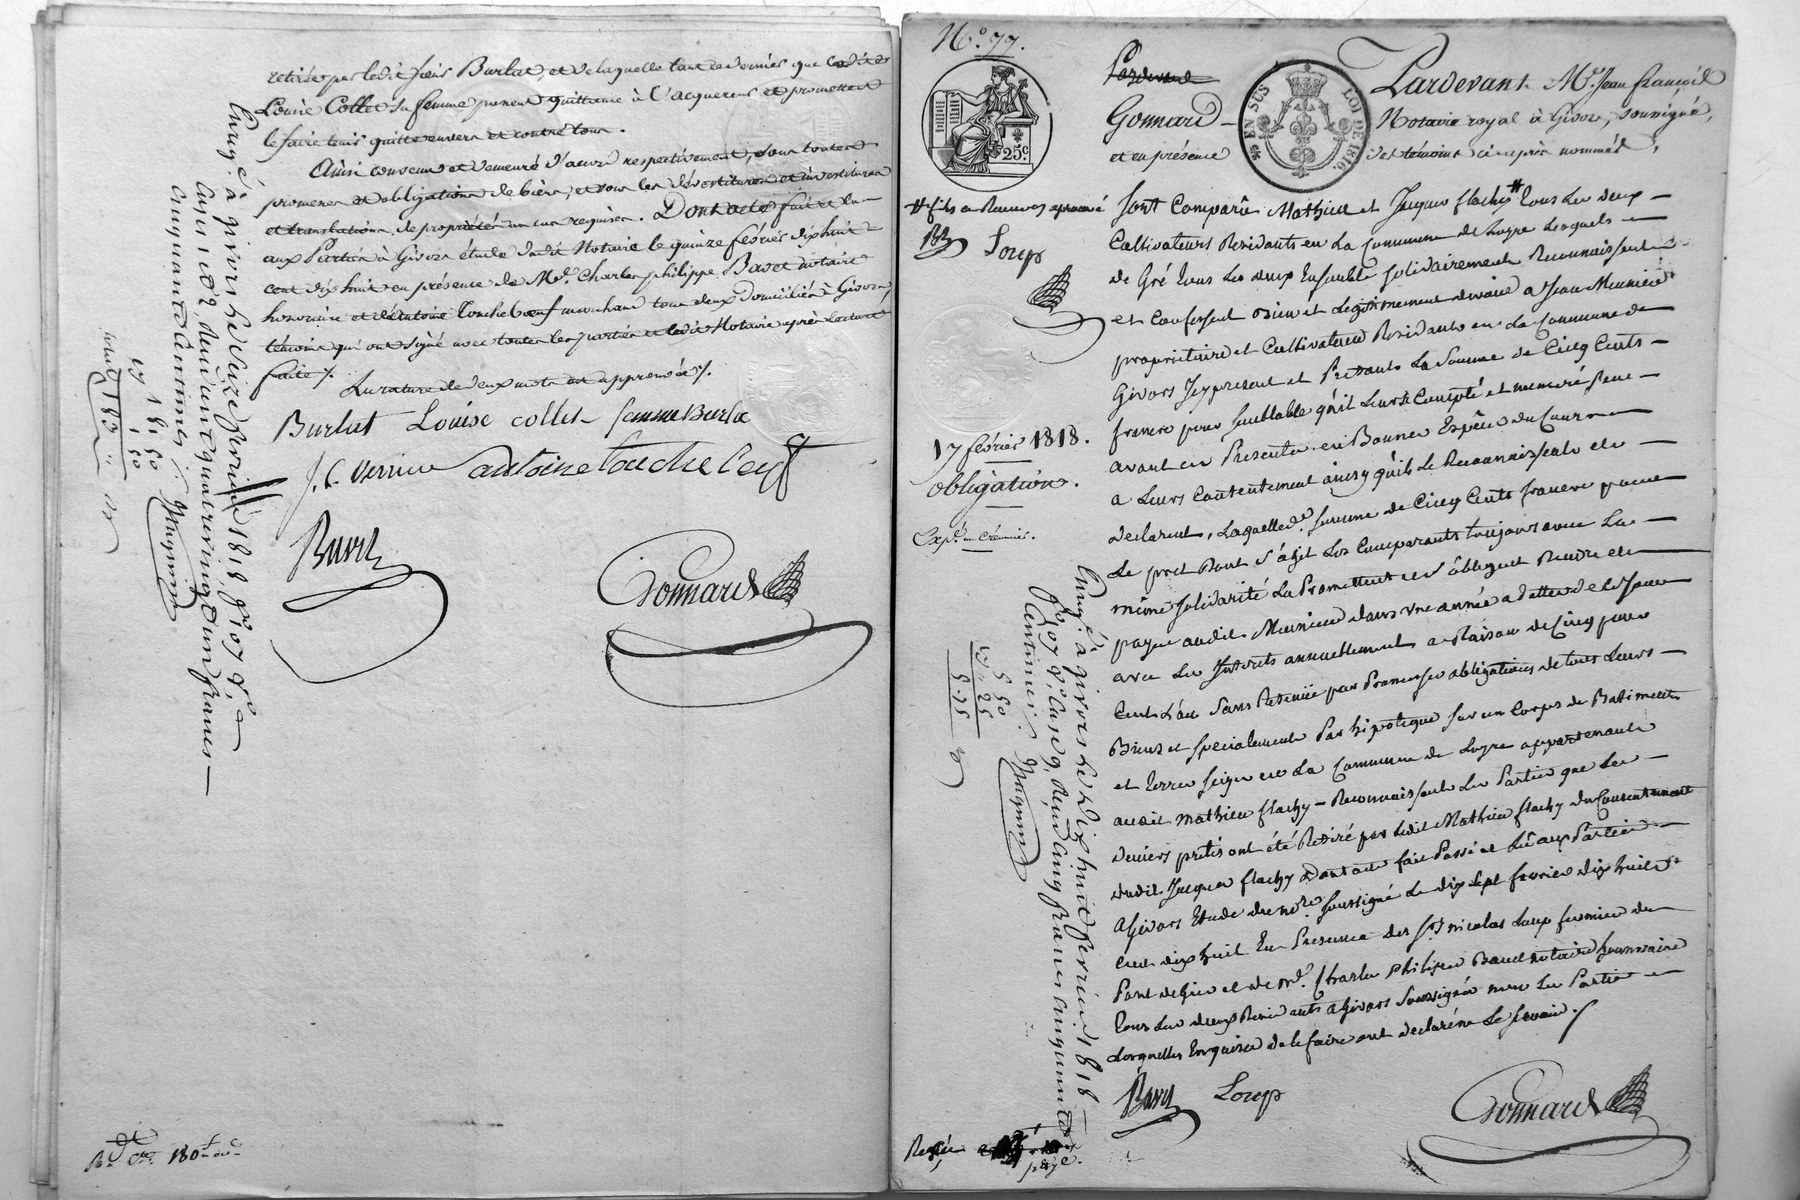 retirée par ledit sieur Burlat, et de laquelle tant ce dernier que ladite
Louise Collet sa femme passent quittance à l'acquereur et promettent
le faire tenir quitte envers et contre tous.
Ainsi convenu et demeuré d'accord respectivement, sous toutes
promesses et obligations de biens, et sous les dévestitures et investitures
et translations de propriétés en cas requises. Dont acte fait et lu
aux Parties à Givors étude dudit Notaire le quinze février dix huit
cent dix huit en présence de Mr. Charles philippe Bavet notaire
honoraire et d'Antoine Toucheboeuf marchand tous deux Domiciliés à Givors,
témoins qui ont signé avec toutes les parties et ledit Notaire après lecture
faite /.
La rature de deux mots est approuvée /.
Burlat Louise collet femme Burlat
J. C. Verrier antoine touche beuf
Bavet
Gonnard
Enregé à givors le seize fevrier 1818 fo 107 Ro
Cases 1 et 2, reçu cent quatre vingt un francs
cinquante centimes.
Mugnier
181 50
1 50
183 "
180
No. 77.
25c
EN SUS
LOI DE 1816.
Pardevant
Pardevant Mr. Jean françois
Gonnard Notaire royal à Givors, soussigné,
et en présence des témoins ci après nommés,
# fils a Rouvroy aprouvé
Loup
Sont Comparû Mathieu et Jacques flachy # tous les deux
Cultivateurs Residants en La Commune de Loyre Lesquels
de Gré tous Les deux Ensemble solidairement Reconnaissent
et Confessent bien et Legitimement devoir a Jean Meunier
propriétaire et Cultivateur Residants en La Commune de
Givors Icy present et Acceptants La Somme de Cinq Cents
francs pour semblable qu'il Leurs a Compté et nommeré peu
avant ces Presentes en Bonnes Espèce du Cour
a Leurs Contentement ainsy qu'ils Le Reconnaissent et
declarent, Laquelle de somme de Cinq Cents francs pour
Le pret dont s'agit Les Comparants toujours avec La
même solidarité La Promettent et s'obligent Rendre et
payer audit Meunier dans une année a datter de ce jour
avec Les Intérêts annuellement a Raison de Cinq pour
Cent L'an sans Retenüe par Promesses obligations de tout Leurs
Biens et specialement Par hipoteque sur un Corps de Batiment
et terres scize en La Commune de Loyre appartenants
audit Mathieu flachy - Reconnaissent Les Parties que Les
deniers pretés ont été Retiré par Ledit Mathieu flachy du Consentement
dudit Jacques flachy Dont acte fait Passé et Lû aux Parties
a Givors Etude du nore. soussigné Le dix sept fevrier dix huit
cent dix huit En Presence des Srs nicolas Loup fermier du
Pont de Gier et de Mr. Charles Philippe Bavet notaire honnoraire
tous Les deux Residants a Givors soussignés non Les Parties
Lesquelles Enquises de le faire ont declaré ne Le savoir. /
17 février 1818.
obligation.
Expé. au Créancier.
Enregé à givors le dix huit fevrier 1818
fo 107 Ro, Case 9, Reçu cinq francs cinquante
Centimes.
Mugnier
5 50
" 25
5.75
Bavet Loup Gonnard